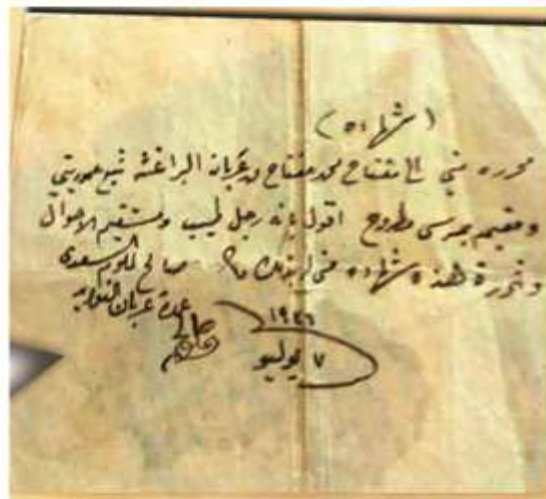 (شهاده)
محرره مني الى مفتاح محمد مفتاح من عربان البراغثه تبع موريتي
ومقيم بمرسى مطروح اقول بانه رجل طيب ومستقيم الاحوال
وتحررة هذه شهاده مني له بذلك صالح لملوم السعدى
عمدة عربان الفوايد
صالح
١٩٤٦
٧ يوليو